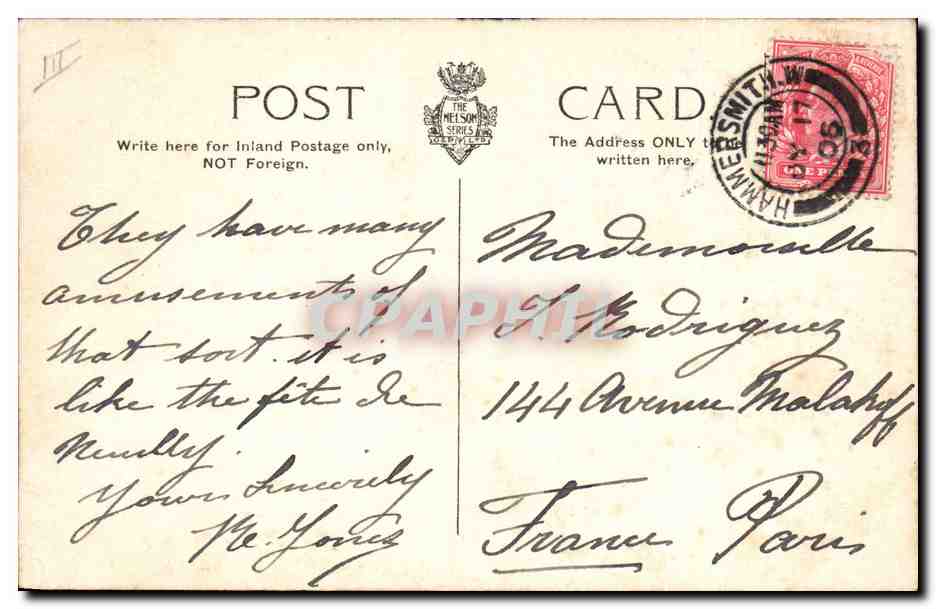 III
POST CARD
THE
NELSON
SERIES
Write here for Inland Postage only,
NOT Foreign.
The Address ONLY t
written here.
HAMMERSMITH.W
11.30AM
17
06
32
ONE P
They have many
amusements of
that sort. it is
like the fête de
Neuilly.
Yours Sincerely
Mademoiselle
Rodriguez
144 Avenue Malakoff
France Paris
CPAPHIL